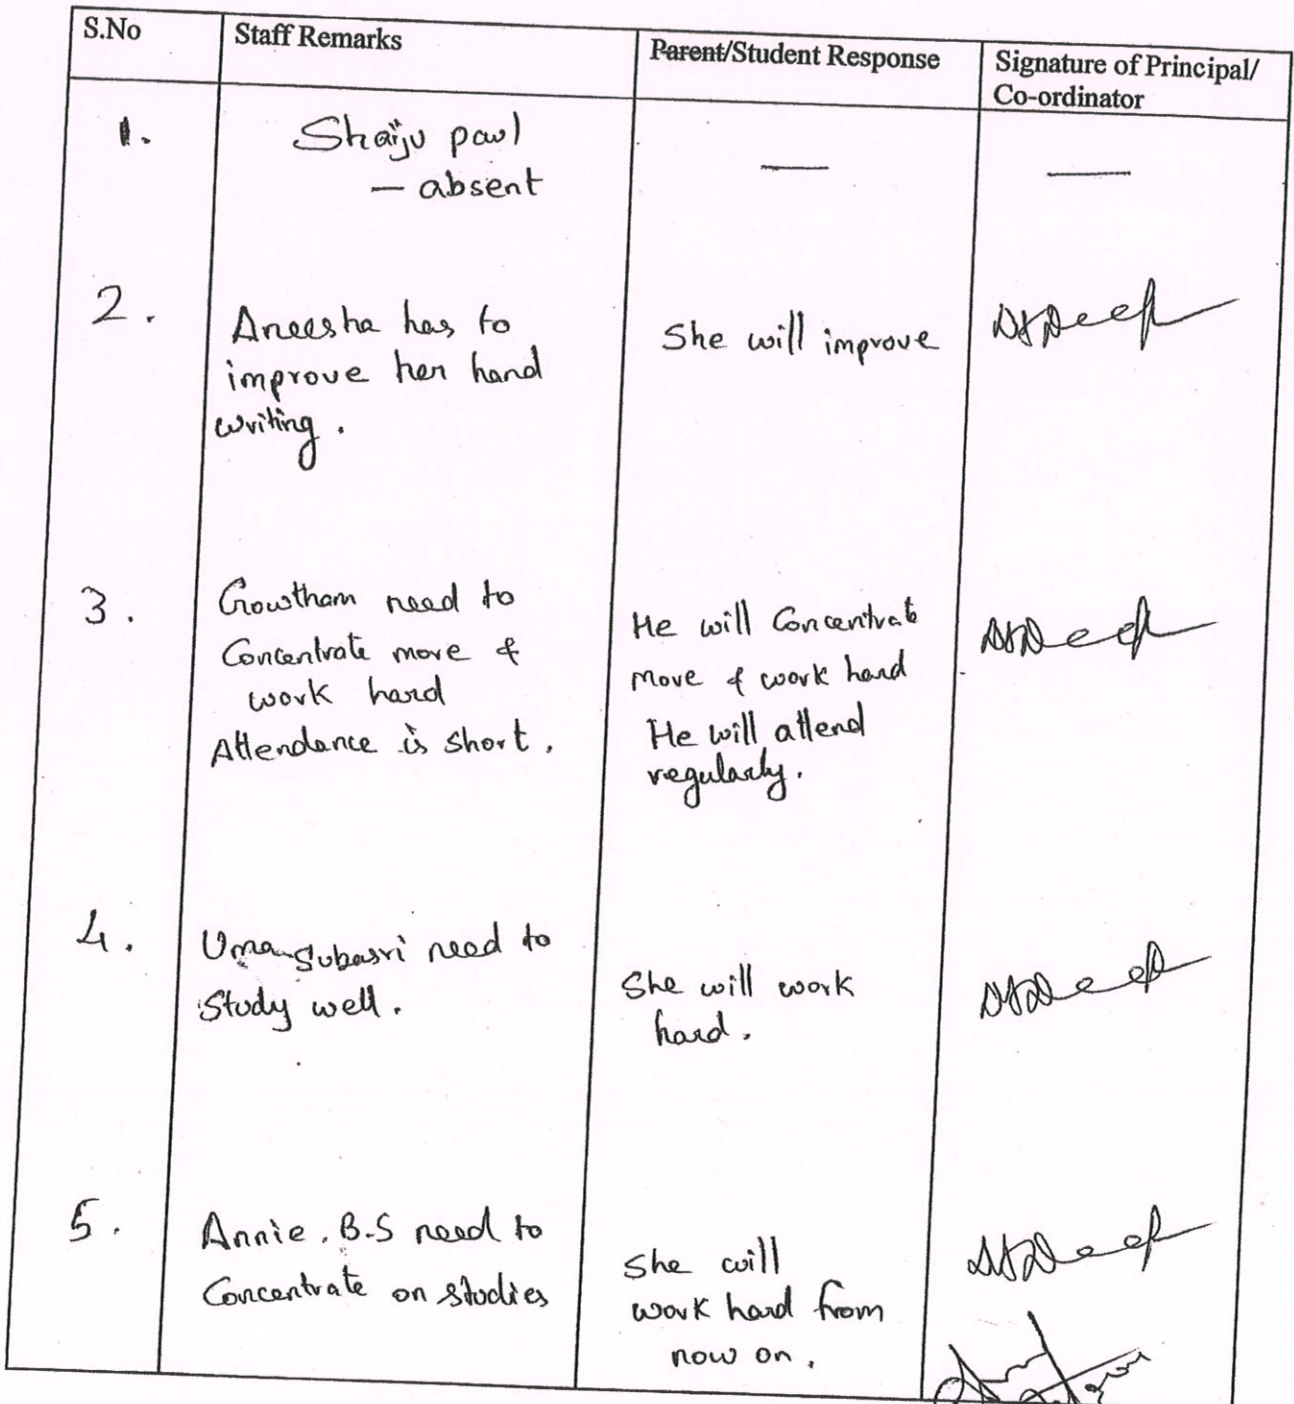 S.No
Staff Remarks
Parent/Student Response
Signature of Principal/
Co-ordinator
1.
Shaiju paul
— absent
—
—
2.
Aneesha has to
improve her hand
writing.
She will improve
3.
Gowtham need to
Concentrate more &
work hard
Attendance is short.
He will Concentrate
more & work hard
He will attend
regularly.
4.
Uma Subasri need to
Study well.
She will work
hard.
5.
Annie. B.S need to
Concentrate on studies
She will
work hard from
now on.